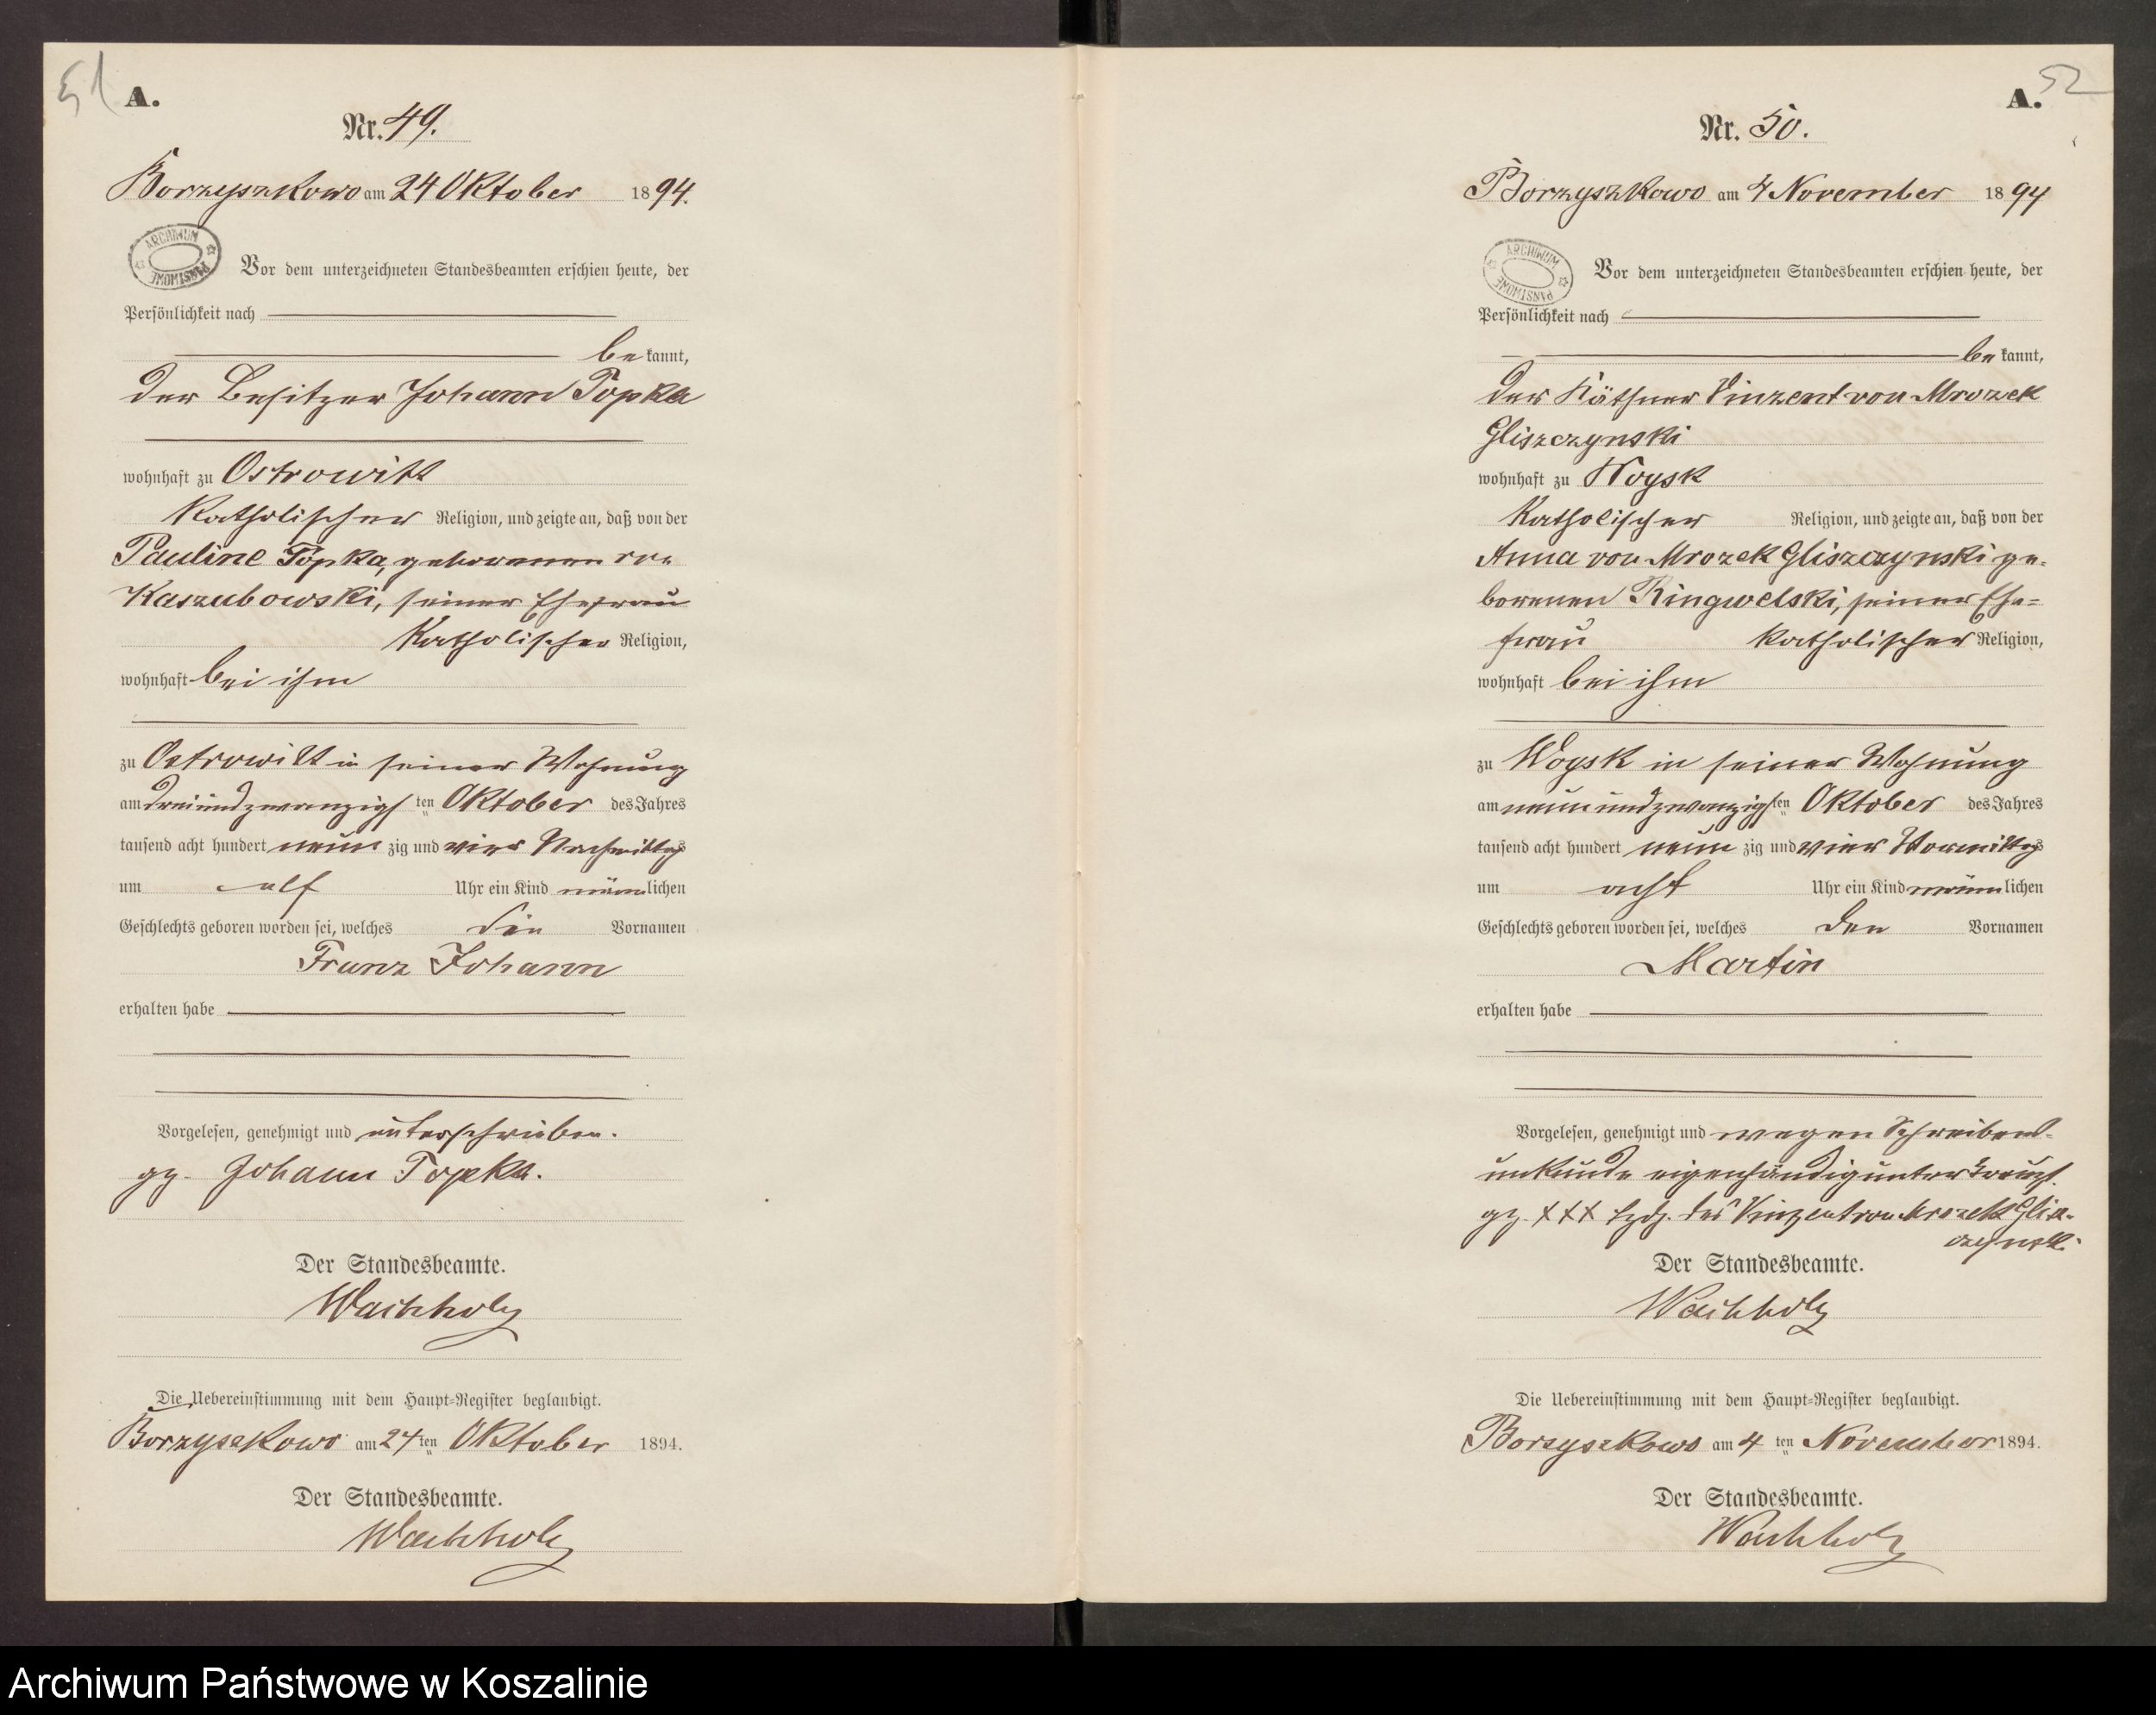 51
A.
Nr. 49.
Borzyszkowo am 24 Oktober 1894.
ARCHIWUM PAŃSTWOWE
Vor dem unterzeichneten Standesbeamten erschien heute, der
Persönlichkeit nach
be kannt,
der Besitzer Johann Topka
wohnhaft zu Ostrowitt
katholischer Religion, und zeigte an, daß von der
Pauline Topka, geborenen von
Kaszubowski, seiner Ehefrau
katholischer Religion,
wohnhaft bei ihm
zu Ostrowitt in seiner Wohnung
am dreiundzwanzigs ten Oktober des Jahres
tausend acht hundert neun zig und vier Nachmittags
um elf Uhr ein Kind männlichen
Geschlechts geboren worden sei, welches die Vornamen
Franz Johann
erhalten habe
Vorgelesen, genehmigt und unterschrieben.
gz. Johann Topka.
Der Standesbeamte.
Wachholz
Die Uebereinstimmung mit dem Haupt=Register beglaubigt.
Borzyszkowo am 24 ten Oktober 1894.
Der Standesbeamte.
Wachholz
52
A.
Nr. 50.
Borzyszkowo am 4 November 1894
ARCHIWUM PAŃSTWOWE
Vor dem unterzeichneten Standesbeamten erschien heute, der
Persönlichkeit nach
be kannt,
der Käthner Vinzent von Mrozek
Gliszczynski
wohnhaft zu Woysk
katholischer Religion, und zeigte an, daß von der
Anna von Mrozek Gliszczynski ge-
borenen Ringwelski, seiner Ehe=
frau katholischer Religion,
wohnhaft bei ihm
zu Woysk in seiner Wohnung
am neunundzwanzigs ten Oktober des Jahres
tausend acht hundert neun zig und vier Vormittags
um acht Uhr ein Kind männlichen
Geschlechts geboren worden sei, welches den Vornamen
Martin
erhalten habe
Vorgelesen, genehmigt und wegen Schreibens-
unkunde eigenhändig unterkreuzt.
gz. +++ hzdj. des Vinzent von Mrozek Glisz-
czynski.
Der Standesbeamte.
Wachholz
Die Uebereinstimmung mit dem Haupt=Register beglaubigt.
Borzyszkowo am 4 ten November 1894.
Der Standesbeamte.
Wachholz
Archiwum Państwowe w Koszalinie